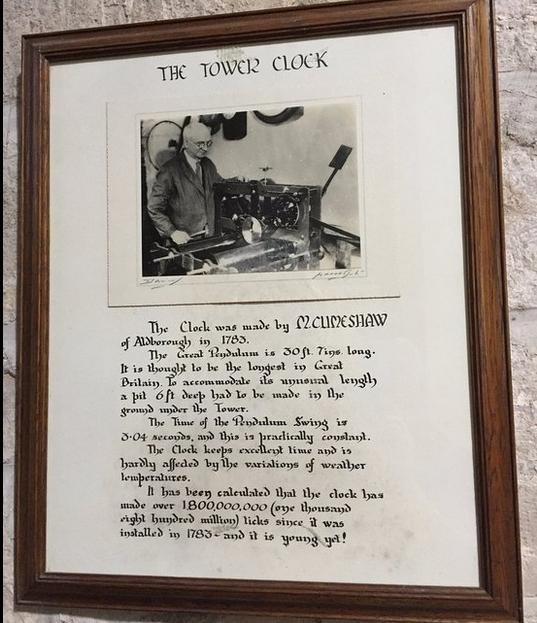 THE TOWER CLOCK
The Clock was made by M.CUMESHAW
of Aldborough in 1783.
The Great Pendulum is 30ft. 7ins. long.
It is thought to be the longest in Great
Britain. To accommodate its unusual length
a pit 6ft deep had to be made in the
ground under the Tower.
The Time of the Pendulum Swing is
3·04 seconds, and this is practically constant.
The Clock keeps excellent time and is
hardly affected by the variations of weather
temperatures.
It has been calculated that the clock has
made over 1,800,000,000 (one thousand
eight hundred million) ticks since it was
installed in 1783 - and it is young yet!